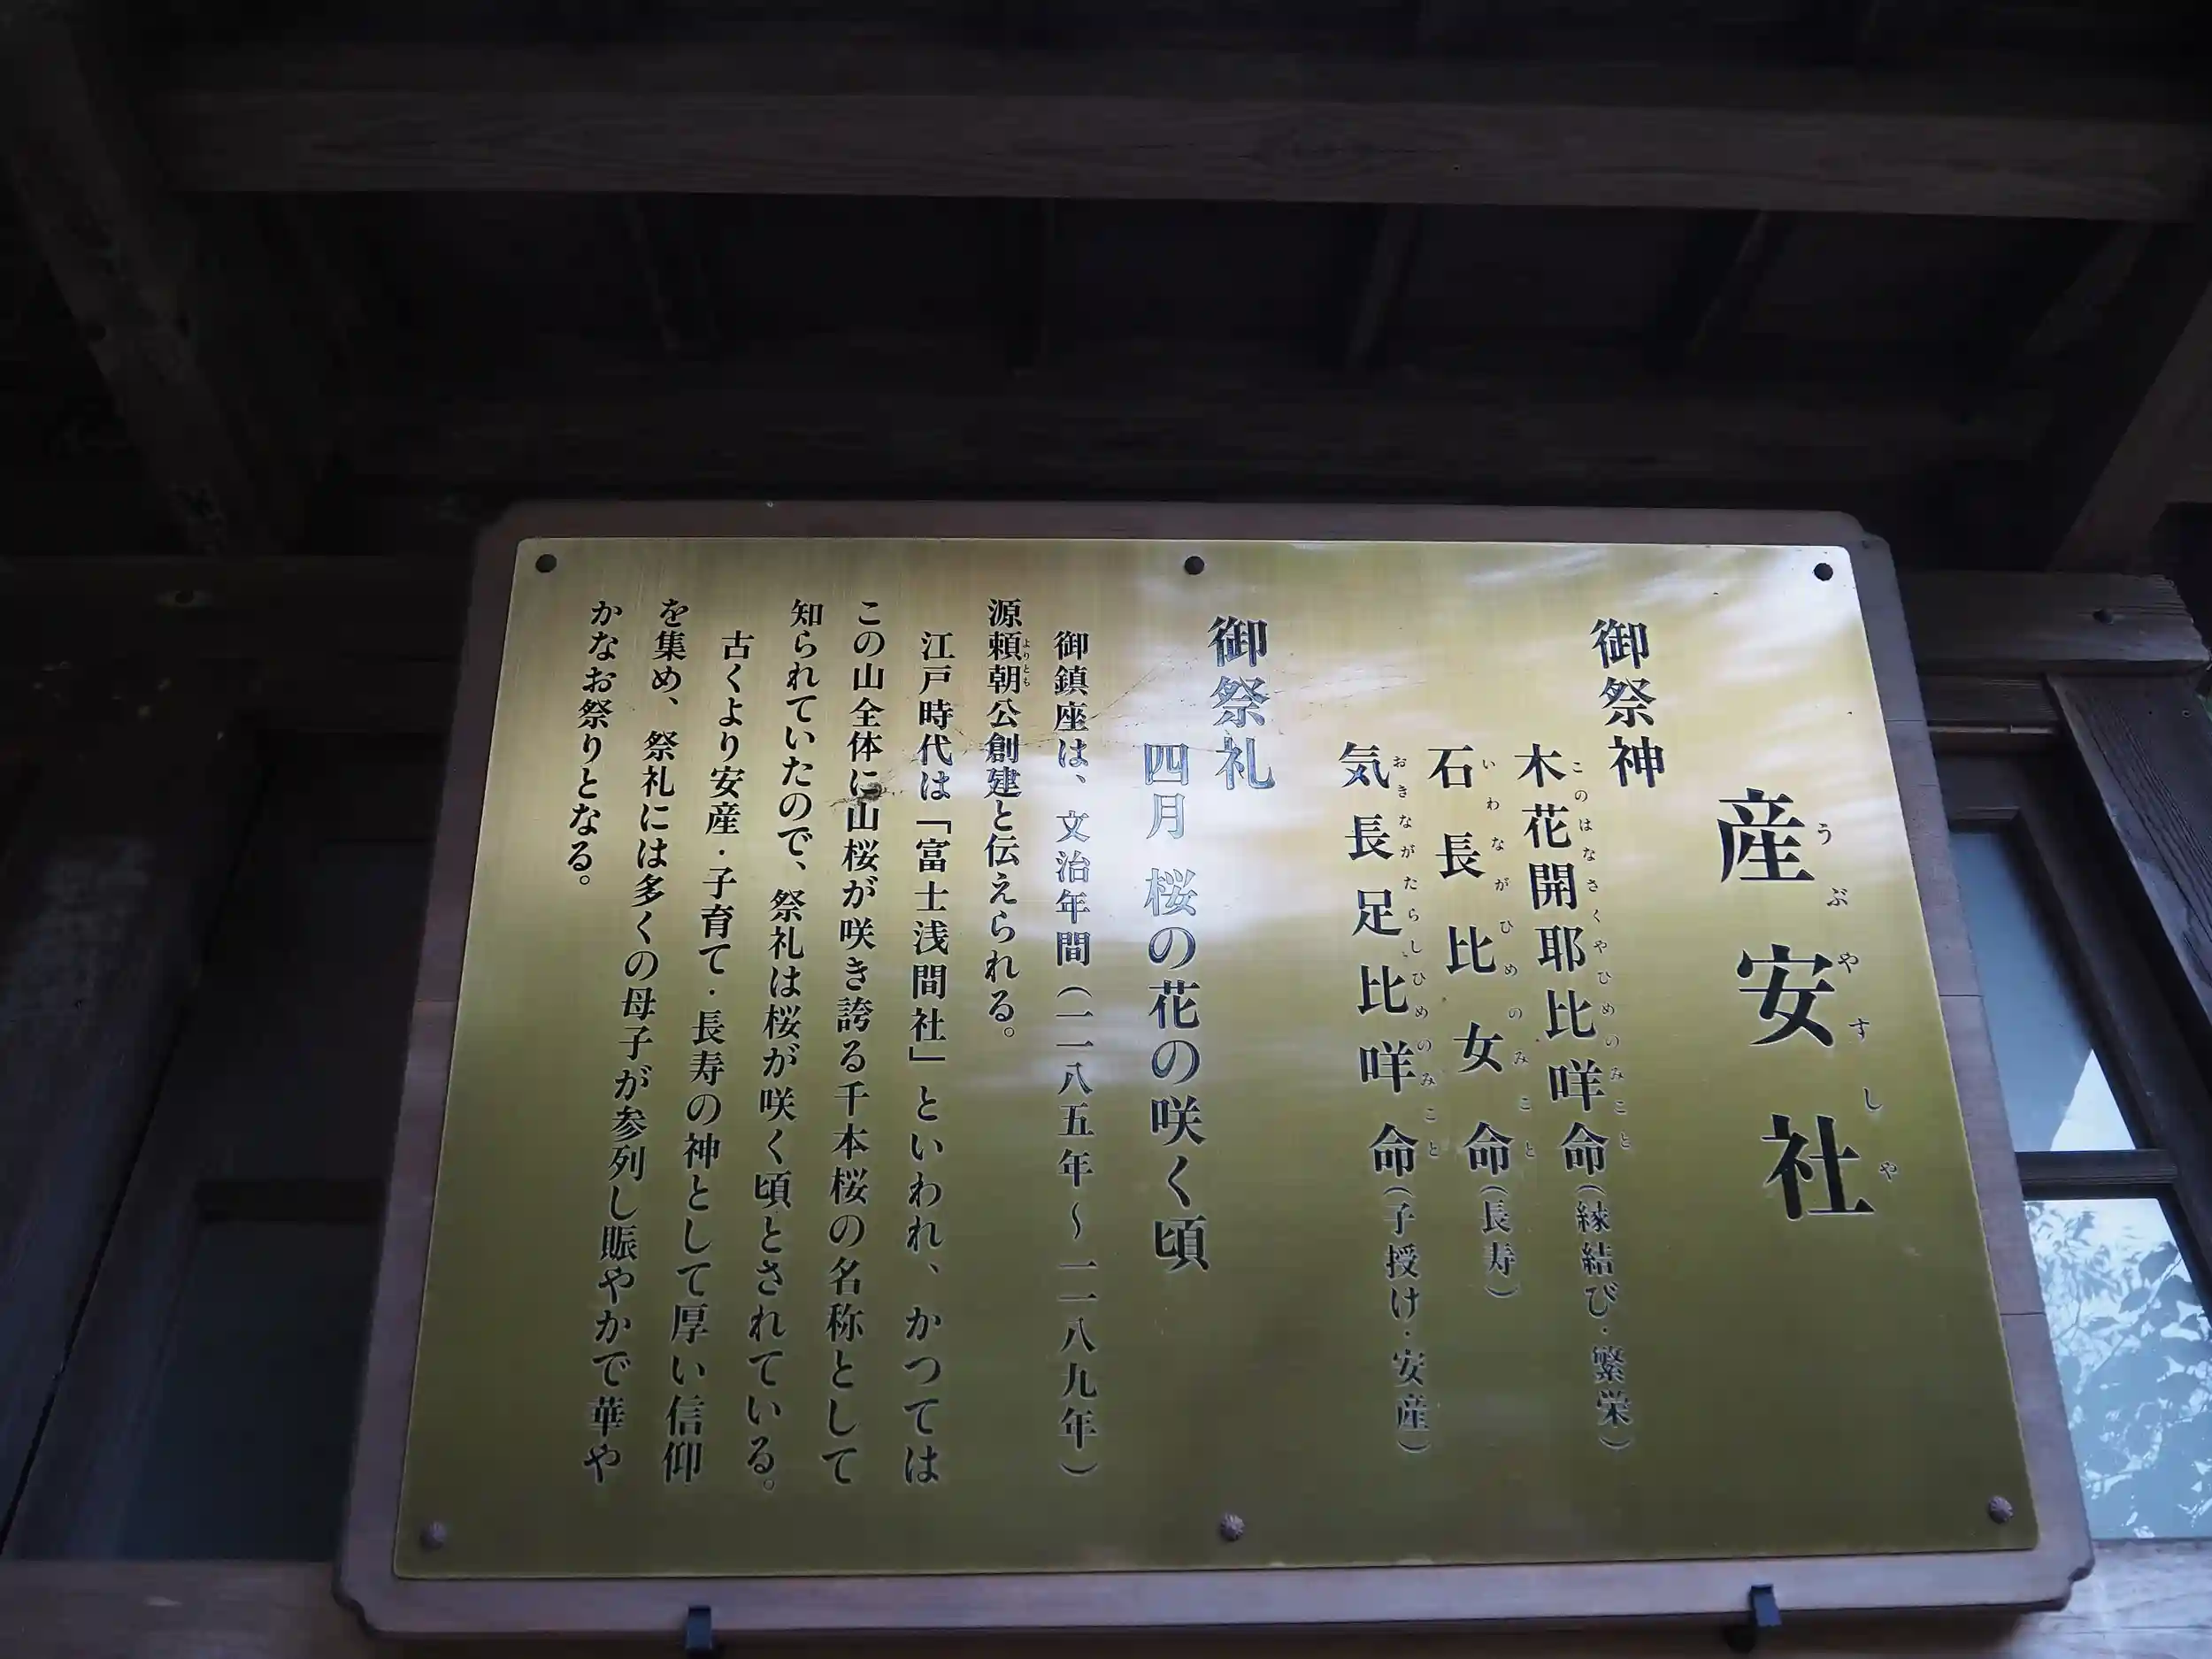 産安社
うぶやすしや
御祭神
木花開耶比咩命(縁結び・繁栄)
このはなさくやひめのみこと
石長比女命(長寿)
いわながひめのみこと
気長足比咩命(子授け・安産)
おきながたらしひめのみこと
御祭礼
四月 桜の花の咲く頃
御鎮座は、文治年間(一一八五年～一一八九年)
源頼朝公創建と伝えられる。
よりとも
江戸時代は「富士浅間社」といわれ、かつては
この山全体に山桜が咲き誇る千本桜の名称として
知られていたので、祭礼は桜が咲く頃とされている。
古くより安産・子育て・長寿の神として厚い信仰
を集め、祭礼には多くの母子が参列し賑やかで華や
かなお祭りとなる。